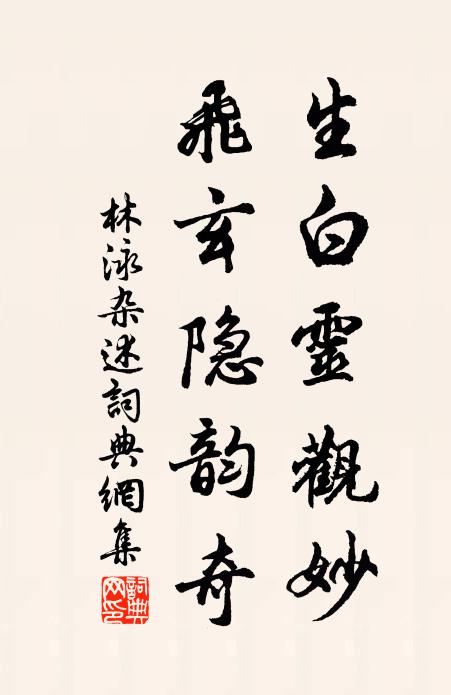 生白靈觀妙
飛玄隐韵奇
林泳杂述詞典網集
詞典